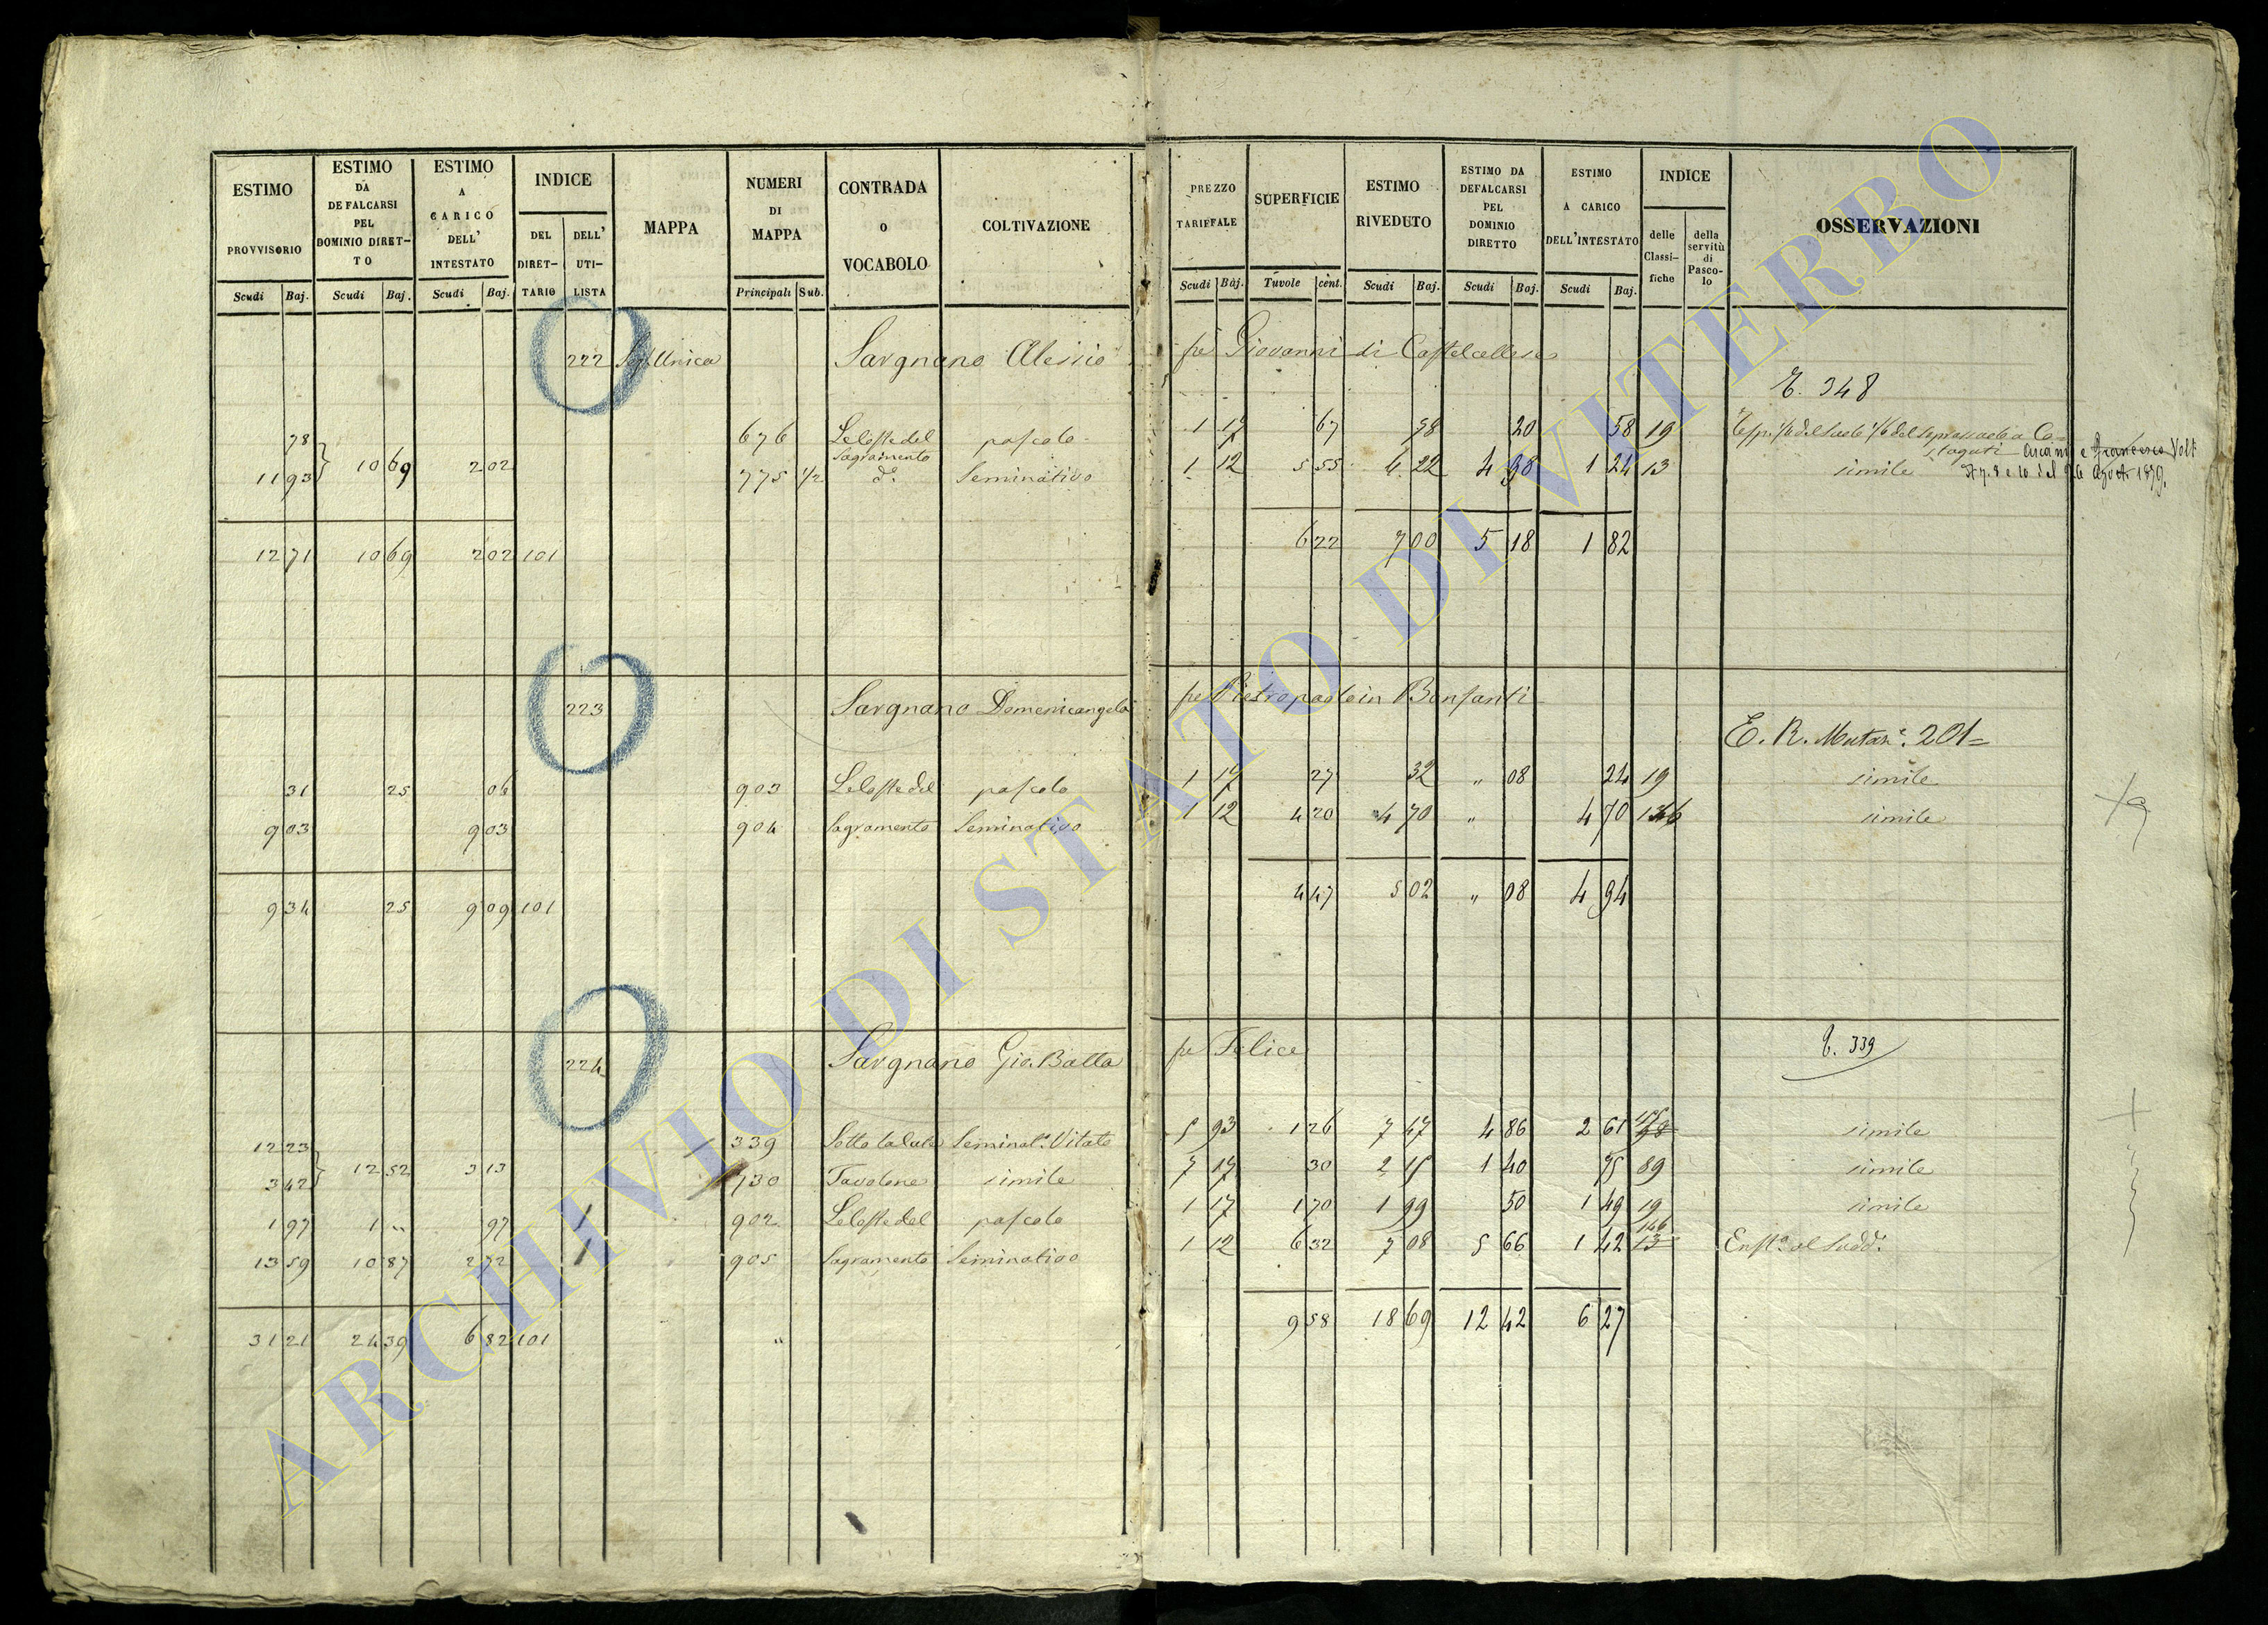 ESTIMO PROVVISORIO Scudi Baj.
ESTIMO DA DEFALCARSI PEL DOMINIO DIRET-TO Scudi Baj.
ESTIMO A CARICO DELL' INTESTATO Scudi Baj.
INDICE DEL DIRET-TARIO DELL' UTI-LISTA
MAPPA
NUMERI DI MAPPA Principali Sub.
CONTRADA O VOCABOLO
COLTIVAZIONE
PREZZO TARIFFALE Scudi Baj.
SUPERFICIE Tavole cent.
ESTIMO RIVEDUTO Scudi Baj.
ESTIMO DA DEFALCARSI PEL DOMINIO DIRETTO Scudi Baj.
ESTIMO A CARICO DELL'INTESTATO Scudi Baj.
INDICE delle Classi-fiche della servitù di Pasco-lo
OSSERVAZIONI
222 Unica Savgnano Alessio Giovanni di Castelcellese
E. 348
78 676 pascolo 1 17 67 78 20 58 19
10 69 2 02 Sagramento
11 93 775 1/2 dº Seminativo 1 12 5 55 1 24 13 simile
e Francesco Volt
7. 8 e 10 del 26 Agosto 1879.
12 71 10 69 2 02 101 6 22 7 00 5 18 1 82
223 Savgnano Domenicangelo Pietropaolo in Bonfanti
E. R. Mutazº. 201=
31 25 06 903 pascolo 1 17 27 32 " 08 24 19 simile
9 03 9 03 904 Sagramento Seminativo 1 12 4 20 4 70 " 4 70 simile
9 34 25 9 09 101 4 47 5 02 " 08 4 94
224 Savgnano Gio. Batta Felice
E. 339
12 23 339 Sotto Seminatº. Vitato 5 93 1 26 7 47 4 86 2 61 simile
12 52 3 13
3 42 730 Tavolone simile 7 17 30 2 15 1 40 75 89 simile
1 97 1 " 97 1 902 pascolo 1 17 1 70 1 99 50 1 49 19 simile
13 59 10 87 2 72 1 905 Sagramento Seminativo 1 12 6 32 7 08 5 66 1 42 146 13
31 21 24 39 6 82 101 " 9 58 18 69 12 42 6 27
ARCHIVIO DI STATO DI VITERBO